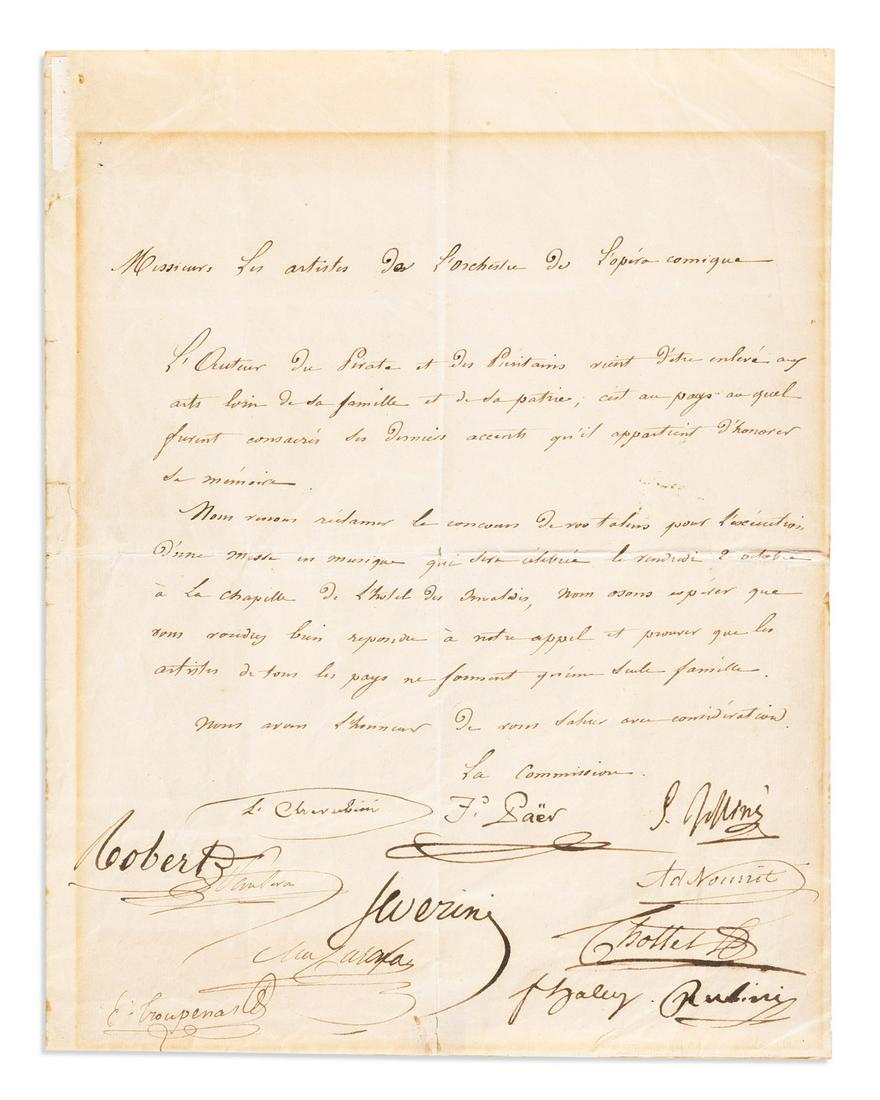 Messieurs les artistes de L'orchestre de L'opéra comique
L'Auteur du Pirate et des Puritains vient d'être enlevé aux
arts loin de sa famille et de sa patrie, c'est au pays au quel
furent consacrés ses derniers accents qu'il appartient d'honorer
sa mémoire.
Nous venons réclamer le concours de vos talens pour L'exécution
D'une messe en musique qui sera célébrée le vendredi 2 octobre
à La chapelle de L'hotel des invalides, nous osons espérer que
vous voudrez bien repondre à notre appel et prouver que les
artistes de tous les pays ne forment qu'une seule famille.
Nous avons L'honneur de vous saluer avec considération
La Commission.
L. Cherubini F.d Paër G. Rossini
Robert
Ad Nourrit
Severini
Chollet
Carafa
F Halevy. Rubini
E. Troupenas